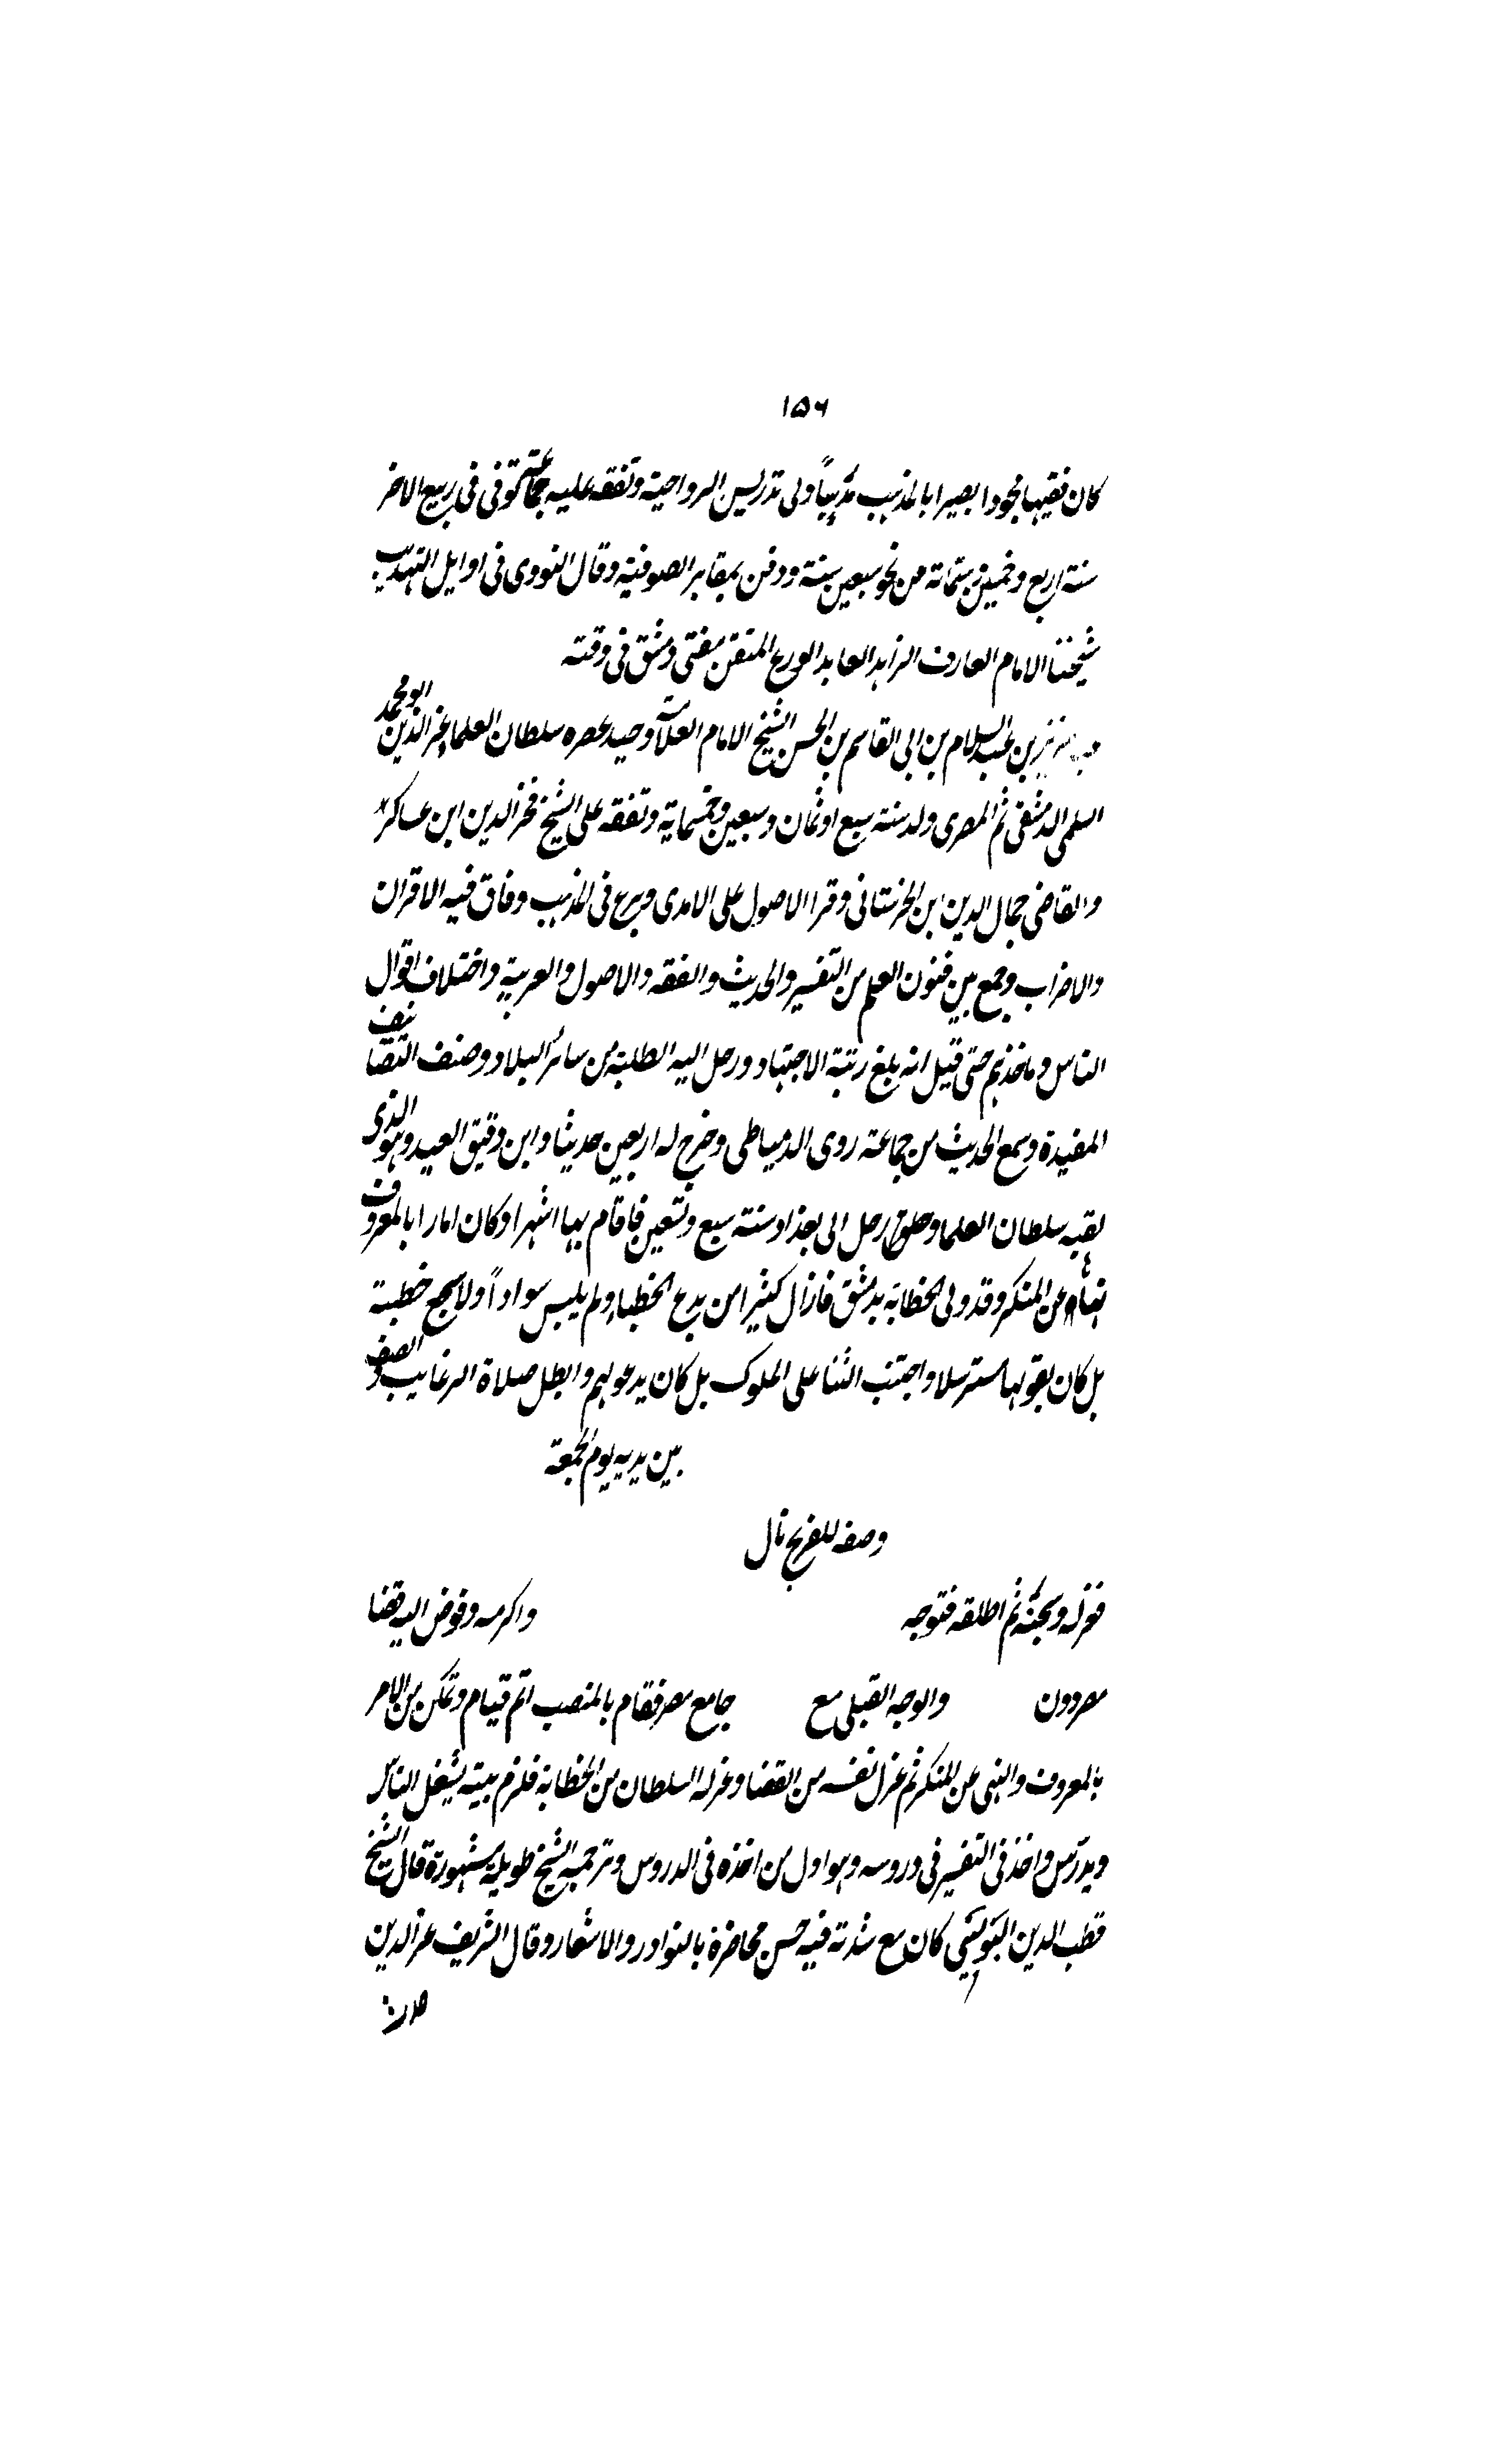 ١٥٦
كان فقيها مجودا بصيرا بالمذهب مدرسا ولى تدريس الرواحية وتفقه عليه جماعة توفى فى ربيع الاخر
سنة اربع وخمسين وستمائة من نحو سبعين سنة ودفن بمقابر الصوفية وقال النووى فى اوايل التهذيب
شيخنا الامام العارف الزاهد العابد الورع المتقن مفتى دمشق فى وقته
بن عبد السلام بن ابى القاسم بن الحسن الشيخ الامام العلامة وحيد عصره سلطان العلماء عز الدين ابو محمد
السلمى الدمشقى ثم المصرى ولد سنة سبع او ثمان وسبعين وخمسماية وتفقه على الشيخ فخر الدين ابن عساكر
والقاضى جمال الدين ابن الحرستانى وقرا الاصول على الامدى وبرع فى المذهب وفاق فيه الاقران
والاضراب وجمع بين فنون العلم من التفسير والحديث والفقه والاصول والعربية واختلاف اقوال
الناس وماخذهم حتى قيل انه بلغ رتبة الاجتهاد ورحل اليه الطلبة من سائر البلاد وصنف التصانيف
المفيدة وسمع الحديث من جماعة روى الدمياطى وخرج له اربعين حديثا وابن دقيق العيد وهو الذى
لقبه سلطان العلما وخلق رحل الى بغداد سنة سبع وتسعين فاقام بها اشهرا وكان امارا بالمعروف
نهاء عن المنكر وقد ولى الخطابة بدمشق فازال كثيرا من بدع الخطباء ولم يلبس سوادا ولا سجع خطبة
بل كان يقولها مسترسلا واجتنب الثنا على الملوك بل كان يدعو لهم وابطل صلاة الرغايب والنصف
بين يديه يوم الجمعة
وصفد للفرنج نال
فعزله وسجنه ثم اطلقه فتوجه واكرمه وفوض اليه قضا
مصر دون والوجه القبلى مع جامع مصر فقام بالمنصب اتم قيام وتمكن من الامر
بالمعروف والنهى عن المنكر ثم عزل نفسه من القضا وعزله السلطان من الخطابة فلزم بيته يشغل الناس
ويدرس واخذ فى التفسير فى دروسه وهو اول من اخذه فى الدروس وترجمة الشيخ طويلة مشهورة قال الشيخ
قطب الدين كان مع شدته فيه حسن محاضرة بالنوادر والاشعار وقال الشريف عز الدين